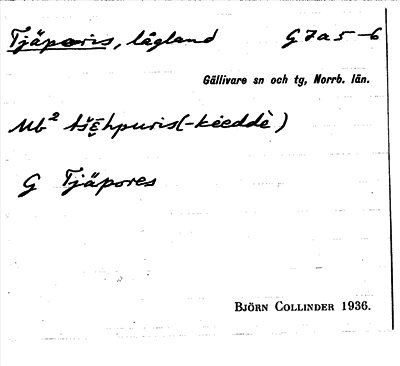 Tjäporis, lågland G7a5-6
Gällivare sn och tg, Norrb. län.
Mb² tšē̬hpuris(-kèeddè)
G Tjäpores
BJÖRN COLLINDER 1936.